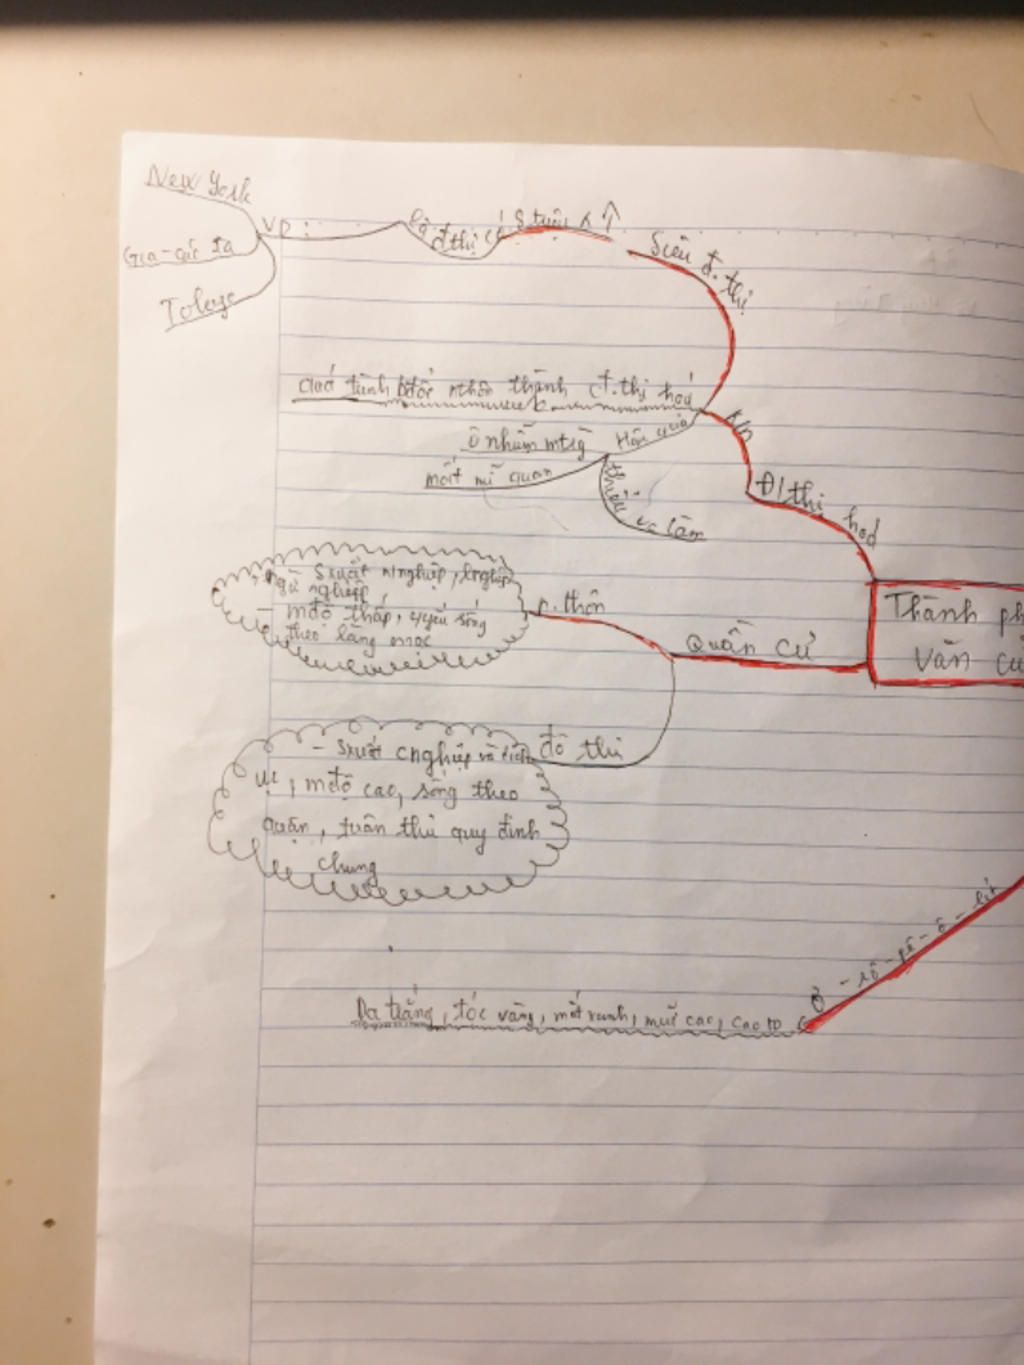 New York
VD:
là đ thị có S tuân ↑
Siêu đ. thị
Gia-các ta
Tokyo
Quá trình bđổi nthôn thành đ.thị hoá
K/n
Hậu quả
Ô nhiễm mtrg
mất mĩ quan
thiếu vc làm
Đ/thị hoá
Sxuất nnghiệp, lnghiệp
ngư nghiệp
n. thôn
- mđộ thấp, yyếu sống
theo làng mạc
Thành ph
Quần cư
Văn cư
đô thị
- Sxuất cnghiệp và dịch
vụ, mđộ cao, sống theo
quận, tuân thủ quy định
chung
Ơ - rô - pê - ô - ít
Da trắng, tóc vàng, mắt xanh, mũi cao, cao to